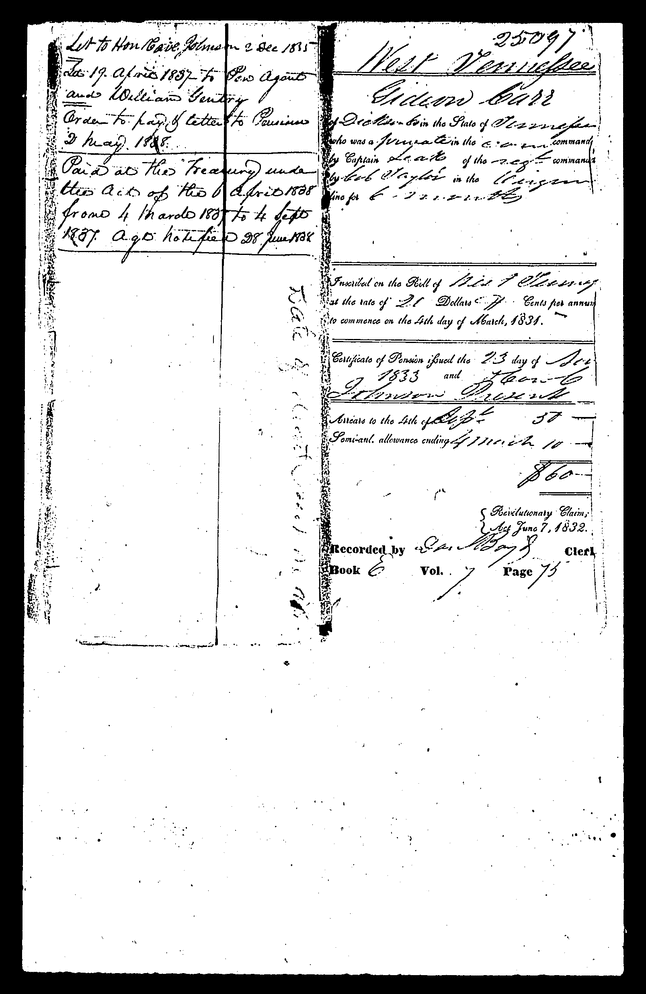 Let to Hon Cave Johnson 2 Dec 1835
Do 19 April 1837 to Pen Agent
and William Gentry
Order to pay & letter to Pension
2 May 1838
Paid at the Treasury under
the Act of the 6 April 1838
from 4 March 1837 to 4 Sept
1837. Agt notified 28 June 1838
25097
West Tennessee
Gideon Carr
of Dickson in the State of Tennessee
who was a private in the com command
by Captain Leak of the regt command
by Col Taylor in the Virgin
line for 6 months
Inscribed on the Roll of West Tenn
at the rate of 20 Dollars Cents per annum
to commence on the 4th day of March, 1831.
Certificate of Pension issued the 23 day of Nov
1833 and Hon C
Johnson Present
Arrears to the 4th of Sept 50
Semi-anl. allowance ending 4 March 10
$60
Revolutionary Claim,
Act June 7, 1832.
Recorded by Boyd Clerk
Book E Vol. 7 Page 75
Date of death